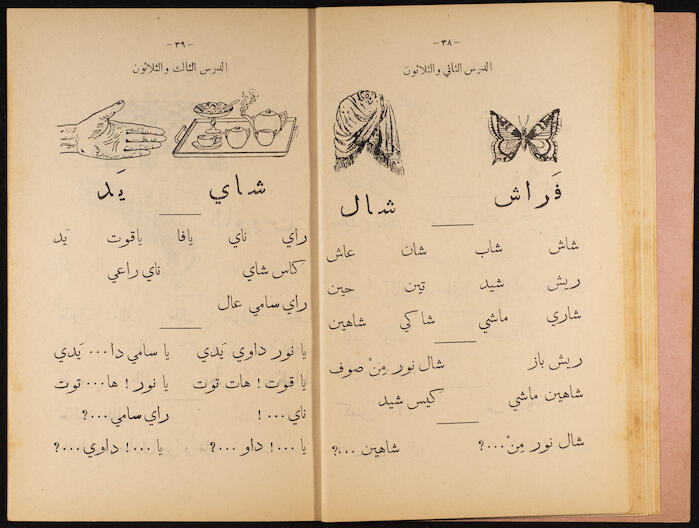 -٣٨-
الدرس الثاني والثلاثون
فَراش شال
شاش شاب شان عاش
ريش شيد تين حين
شاري ماشي شاكي شاهين
ريش باز شال نور مِنْ صوف
شاهين ماشي كيس شيد
شال نور مِنْ...؟ شاهين ...؟
-٣٩-
الدرس الثالث والثلاثون
شاي يَد
راي ناي يافا ياقوت يَد
كاس شاي ناي راعي
راي سامي عال
يا نور داوي يَدي يا سامي دا... يَدي
يا قوت ! هات توت يا نور ! ها... توت
ناي ... ! راي سامي...؟
يا ...! داو ...؟ يا ...! داوي ...؟